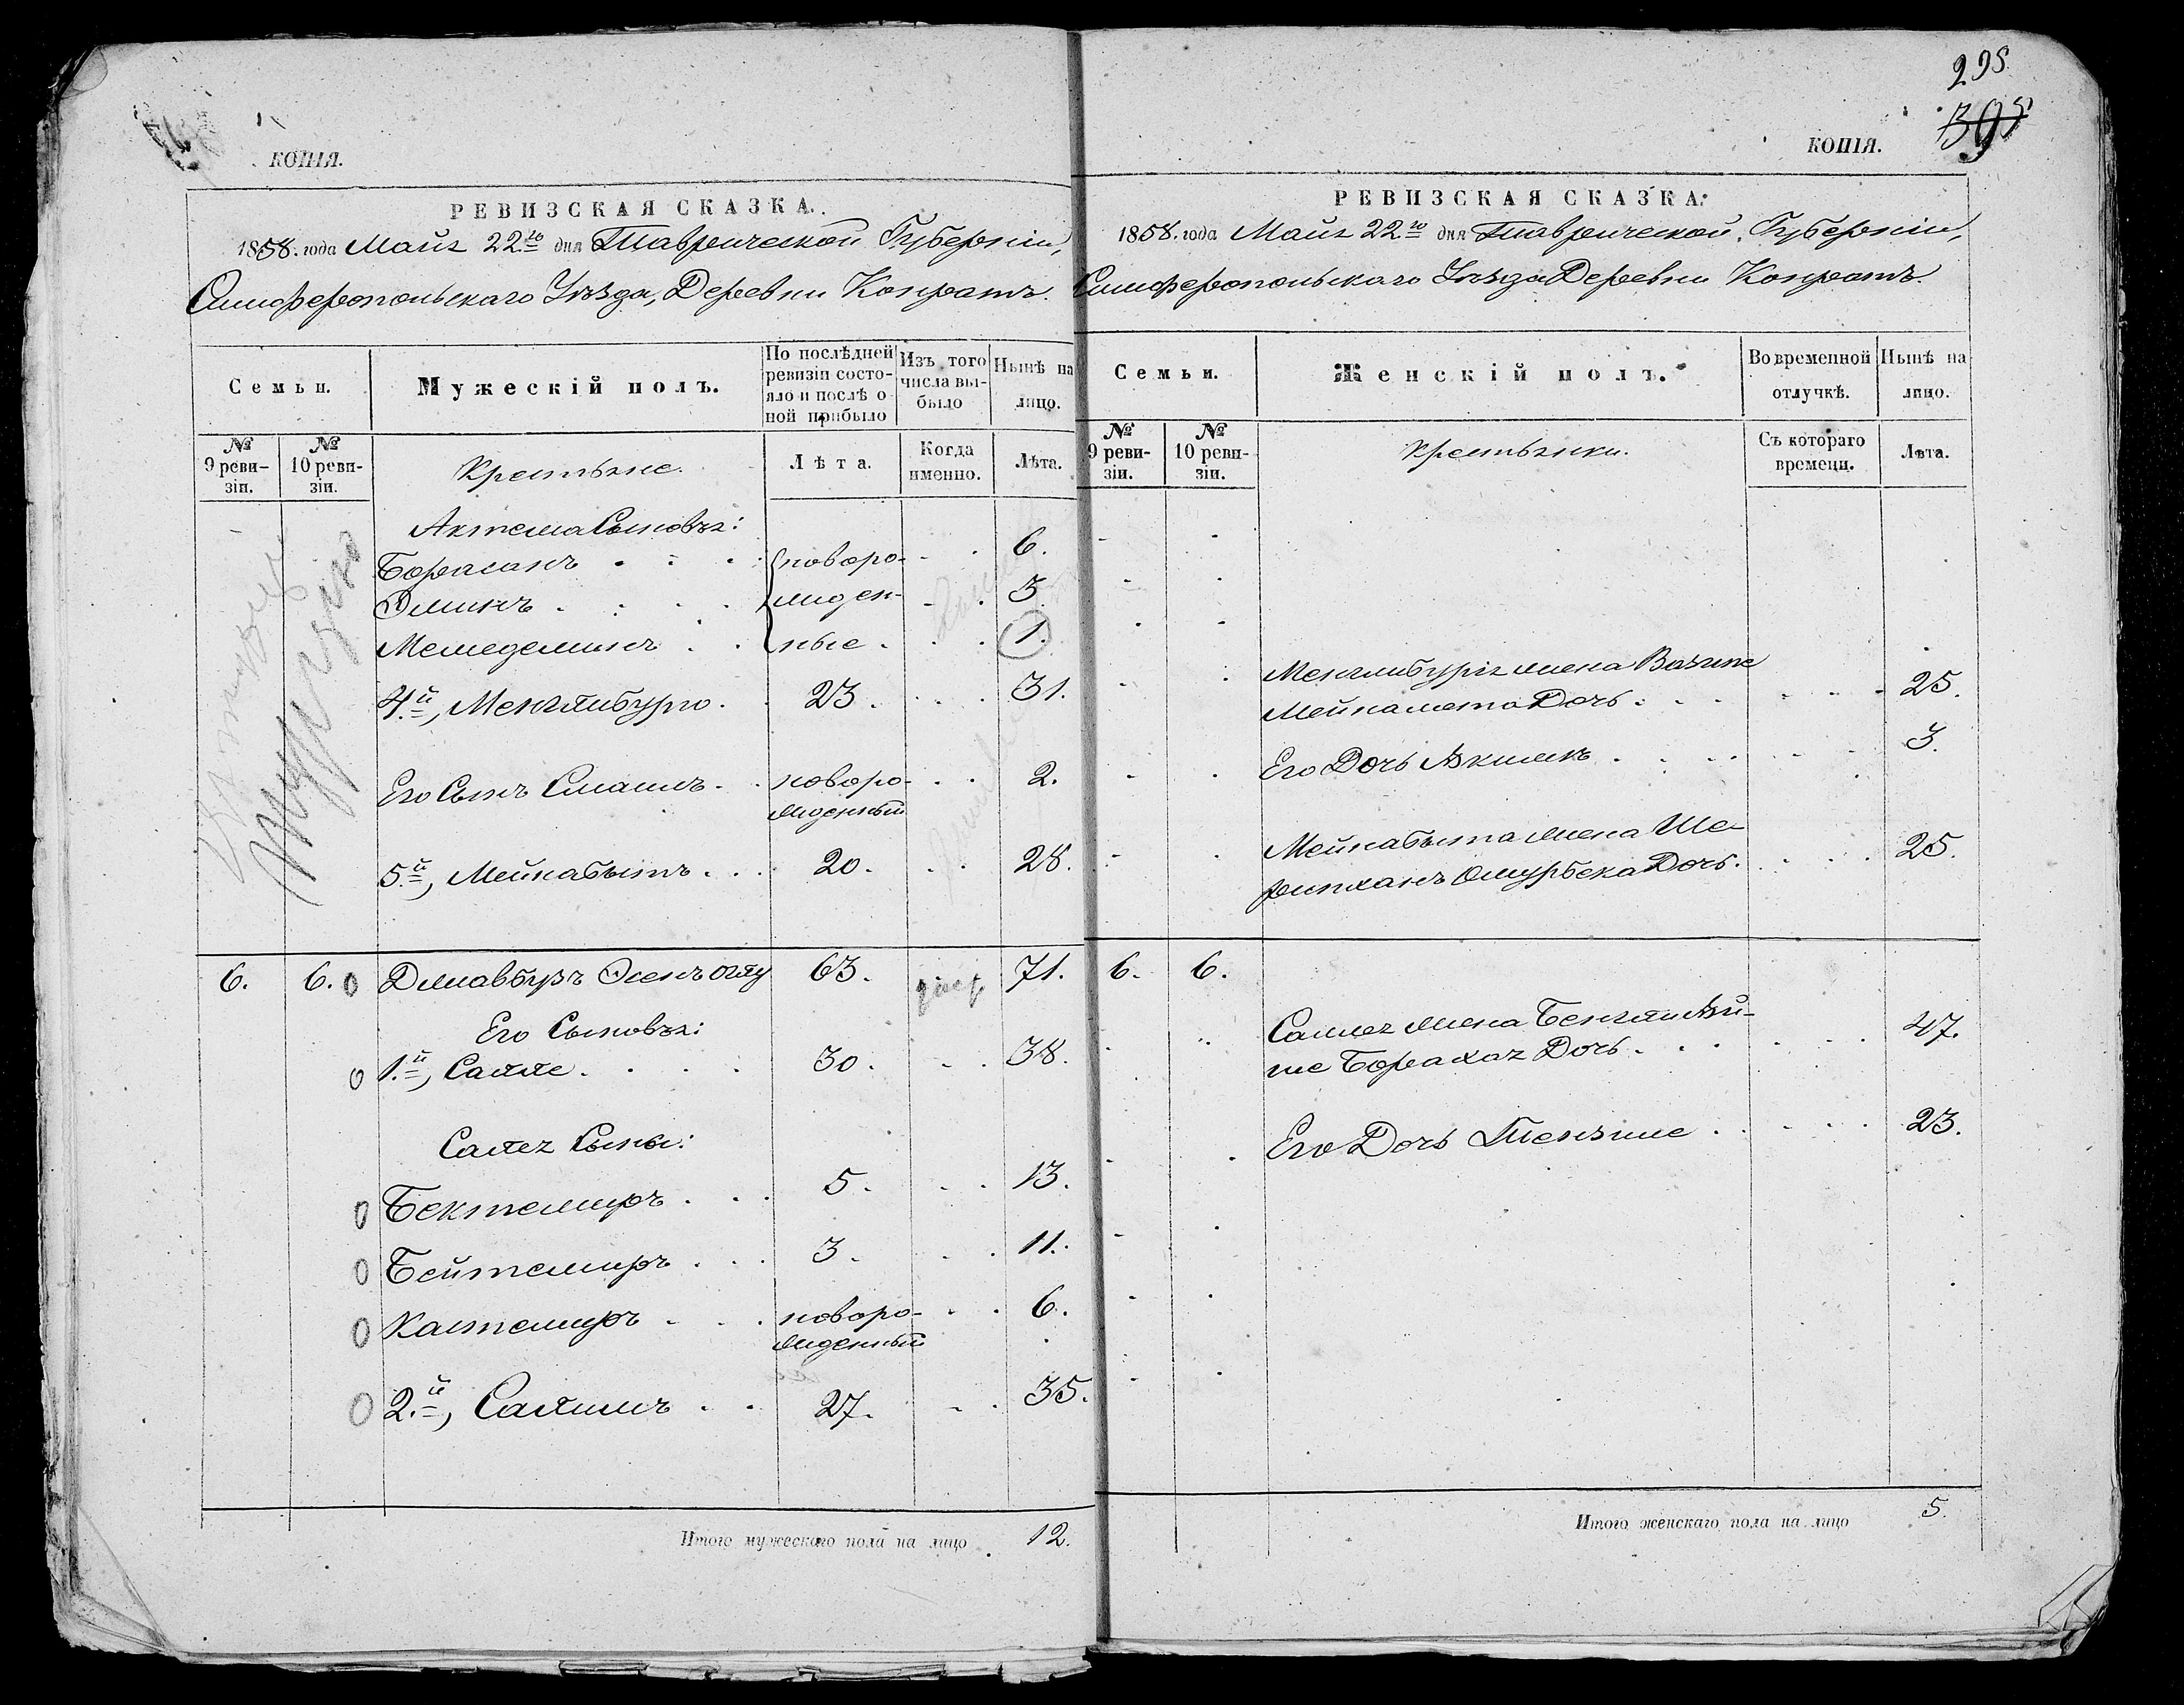 КОПІЯ.
РЕВИЗСКАЯ СКАЗКА.
1858. года Маія 22го дня Таврической Губерніи,
Симферопольскаго Уѣзда, Деревни Конратъ.
Семьи.
Мужескій полъ.
По послѣдней ревизіи состояло и послѣ оной прибыло
Изъ того числа выбыло
Нынѣ на лицо.
№ 9 ревизіи.
№ 10 ревизіи.
Крестьяне.
Лѣта.
Когда именно.
Лѣта.
Актема Сыновья:
Борасанъ . . . новоро- . . 6.
Эминъ . . . жден- . . 3.
Мемедеминъ . . ные . . . 1.
4.й, Менглибурю . . 23. . . . 31.
Его Сынъ Смаилъ . . новоро- . . 2.
жденный
5.й, Мейнабытъ . . . 20. . . . 28.
6. 6. Джавбуръ Эсенъ оглу 63. 71.
Его Сыновья:
1.й, Салле . . . . 30. . . . 38.
Салея Сыны:
Бектемиръ . . . 5. . . 13.
Бейтемиръ . . . 3. . . 11.
Кантемиръ . . . новоро- . . 6.
жденный
2.й, Салимъ . . 27. . . 35.
Итого мужескаго пола на лицо . 12.
295
395
КОПІЯ.
РЕВИЗСКАЯ СКАЗКА.
1858. года Маія 22го дня Таврической Губерніи,
Симферопольскаго Уѣзда Деревни Конратъ.
Семьи.
Женскій полъ.
Во временной отлучкѣ.
Нынѣ на лицо.
№ 9 ревизіи.
№ 10 ревизіи.
Крестьянки.
Съ котораго времени.
Лѣта.
Менглибурія жена Вазипе
Мейнамета Дочь . . . . . . 25.
Его Дочь Акимъ . . . . . . 3.
Мейнабыта жена Ше-
ритханъ Омурбека Дочь . . . . 25.
6. 6.
Салея жена Бенгли Ай-
ше Борахая Дочь . . . . . . 47.
Его Дочь Тензиле . . . . . 23.
Итого женскаго пола на лицо 5.